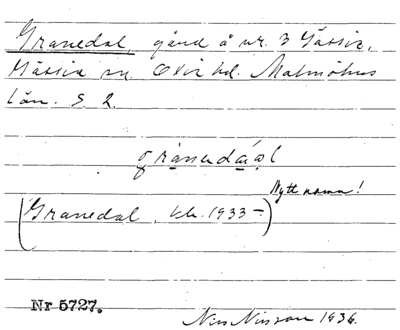 Granedal, gård å nr. 3 Gässie,
Gässie sn Oxie hd. Malmöhus
län. S. 2.
Nytt namn!
(Granedal, kb. 1933–)
Nr 5727.
Nils Nilsson 1936.